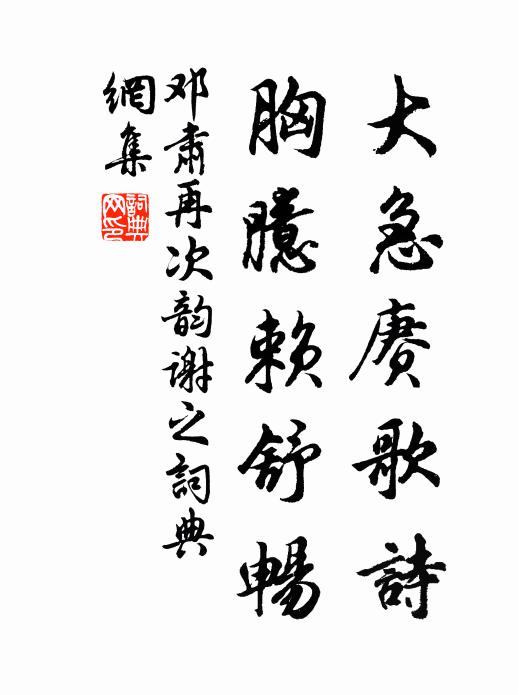 大急赓歌詩
胸臆赖舒暢
邓肃再次韵谢之詞典
網集
詞典
网印